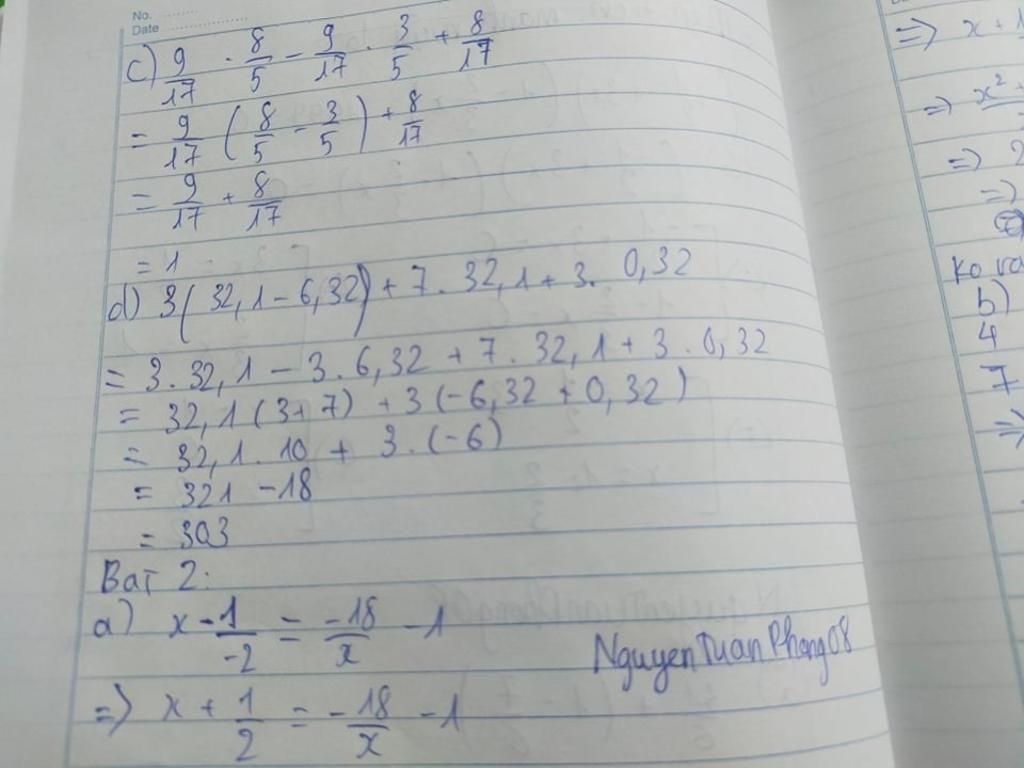 No.
Date
c) 9/17 . 8/5 - 9/17 . 3/5 + 8/17
= 9/17 (8/5 - 3/5) + 8/17
= 9/17 + 8/17
= 1
d) 3(32,1 - 6,32) + 7 . 32,1 + 3 . 0,32
= 3 . 32,1 - 3 . 6,32 + 7 . 32,1 + 3 . 0,32
= 32,1 (3+7) + 3 (-6,32 + 0,32)
= 32,1 . 10 + 3 . (-6)
= 321 - 18
= 303
Bai 2:
a) x - 1/-2 = -18/x - 1
NguyenTuanPhong08
=> x + 1/2 = -18/x - 1
=> x + 1
=> x² +
=> 2
=>
b)
4
7
=>